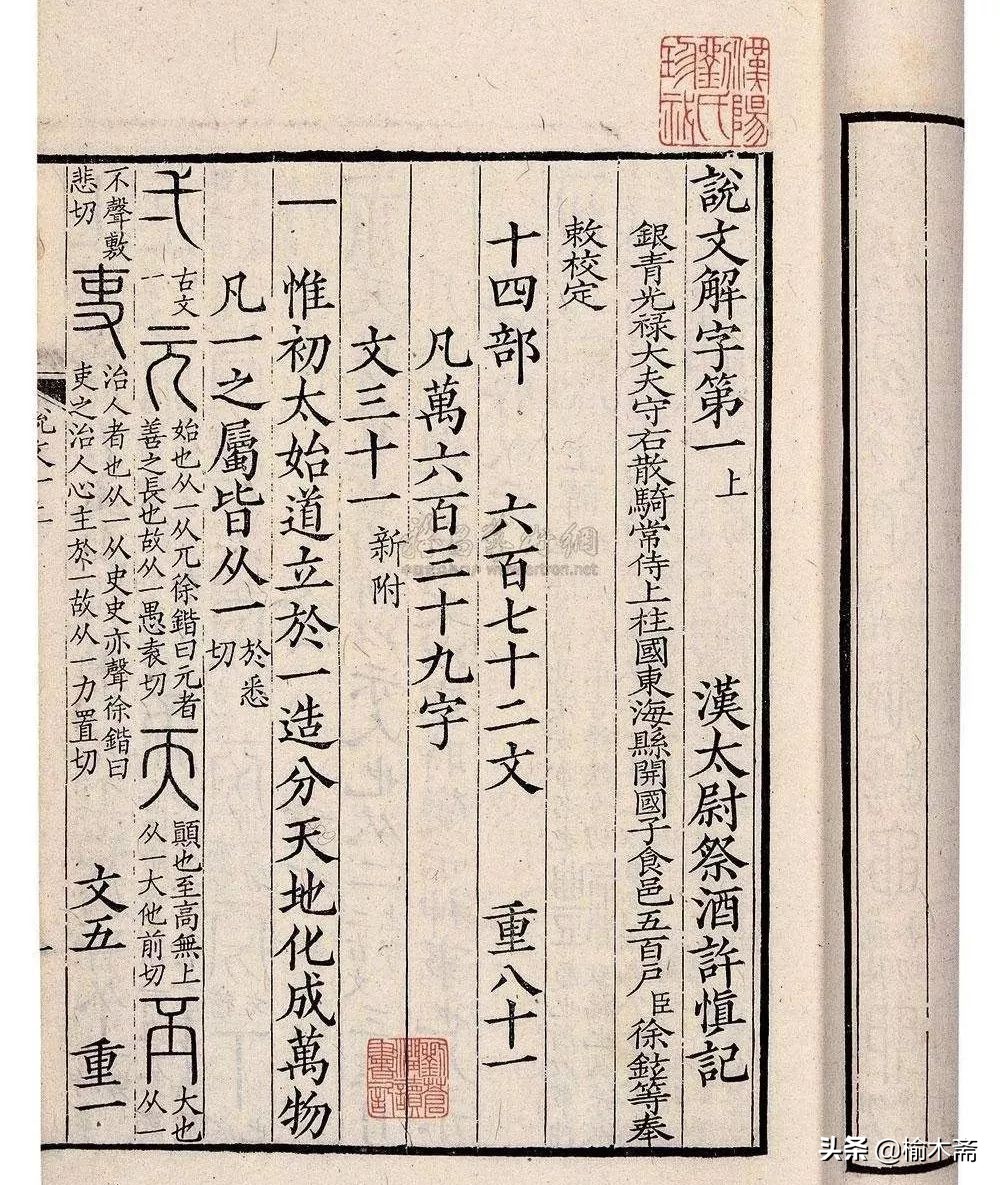 說文解字第一上 漢太尉祭酒許慎記
銀青光禄大夫守右散騎常侍上柱國東海縣開國子食邑五百戶臣徐鉉等奉
敕校定
十四部 六百七十二文 重八十一
凡萬六百三十九字
文三十一新附
一惟初太始道立於一造分天地化成萬物
凡一之屬皆从一於悉切
弌古文一元始也从一从兀徐鍇曰元者善之長也故从一愚袁切天顛也至高無上从一大他前切丕大也从一
不聲敷悲切吏治人者也从一从史史亦聲徐鍇曰吏之治人心主於一故从一力置切 文五 重一
漢陽
劉氏
頭条 @榆木斋